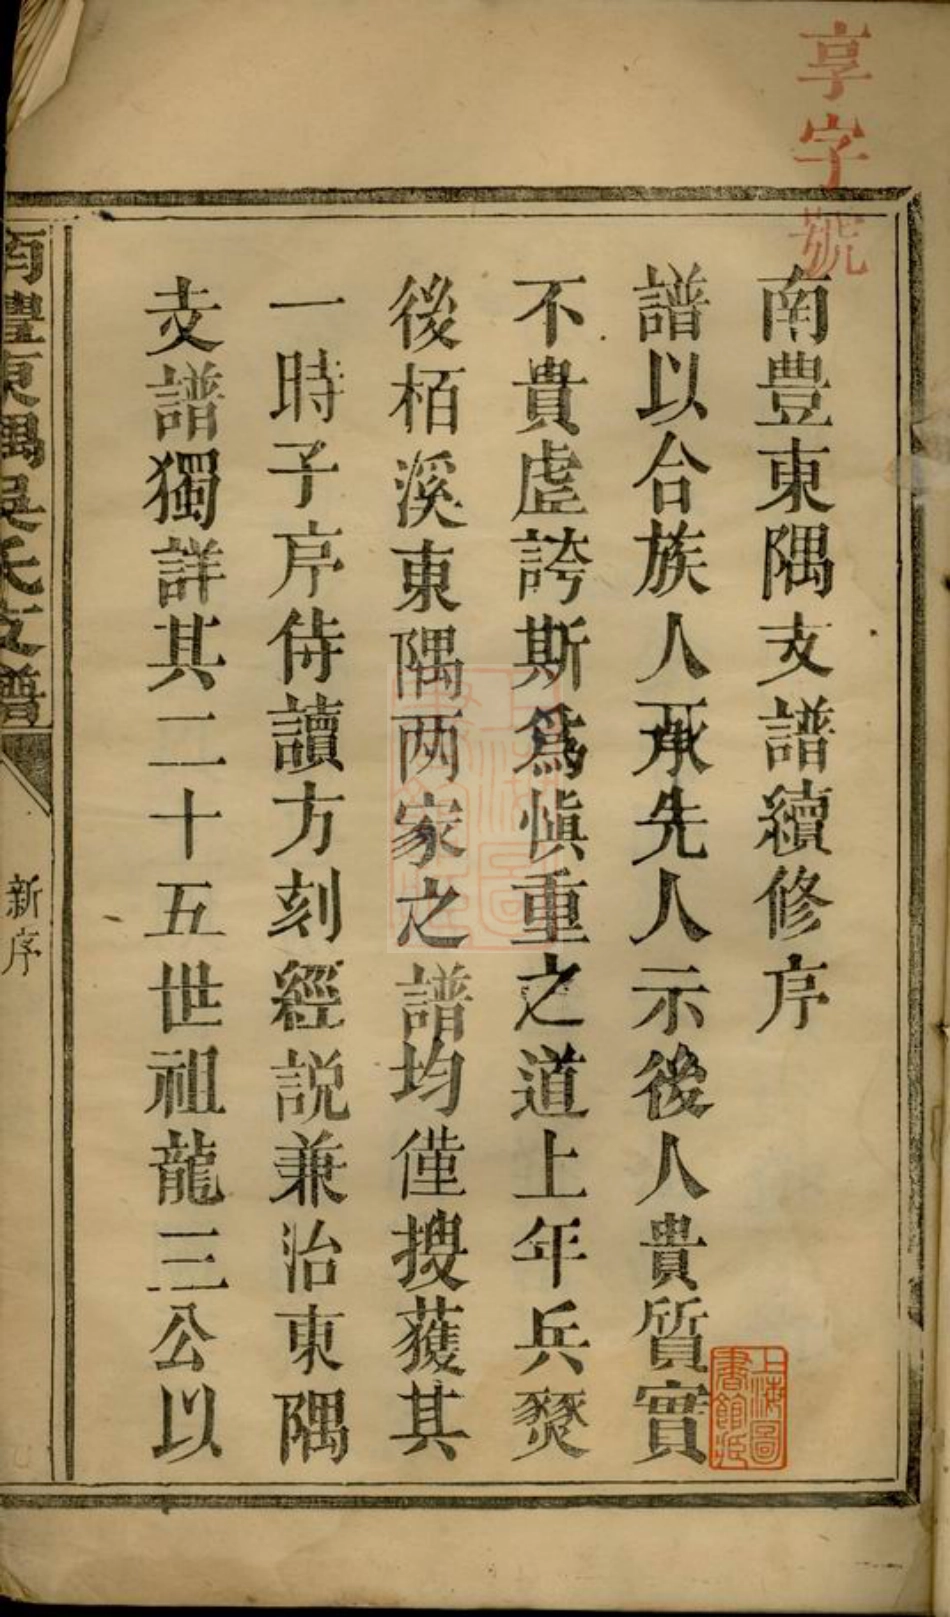 享字號
南豊東隅支譜續修序
譜以合族人承先人示後人貴質實
不貴虛誇斯爲愼重之道上年兵燹
後栢溪東隅两家之譜均僅搜獲其
一時子序侍讀方刻經説兼治東隅
支譜獨詳其二十五世祖龍三公以
南豐東隅吳氏支譜
新序
上海圖書館藏